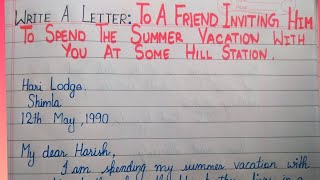 WRITE A LETTER: TO A FRIEND INVITING HIM
TO SPEND THE SUMMER VACATION WITH
YOU AT SOME HILL STATION.
Hari Lodge.
Shimla
12th May, 1990
My dear Harish,
I am spending my summer vacation with